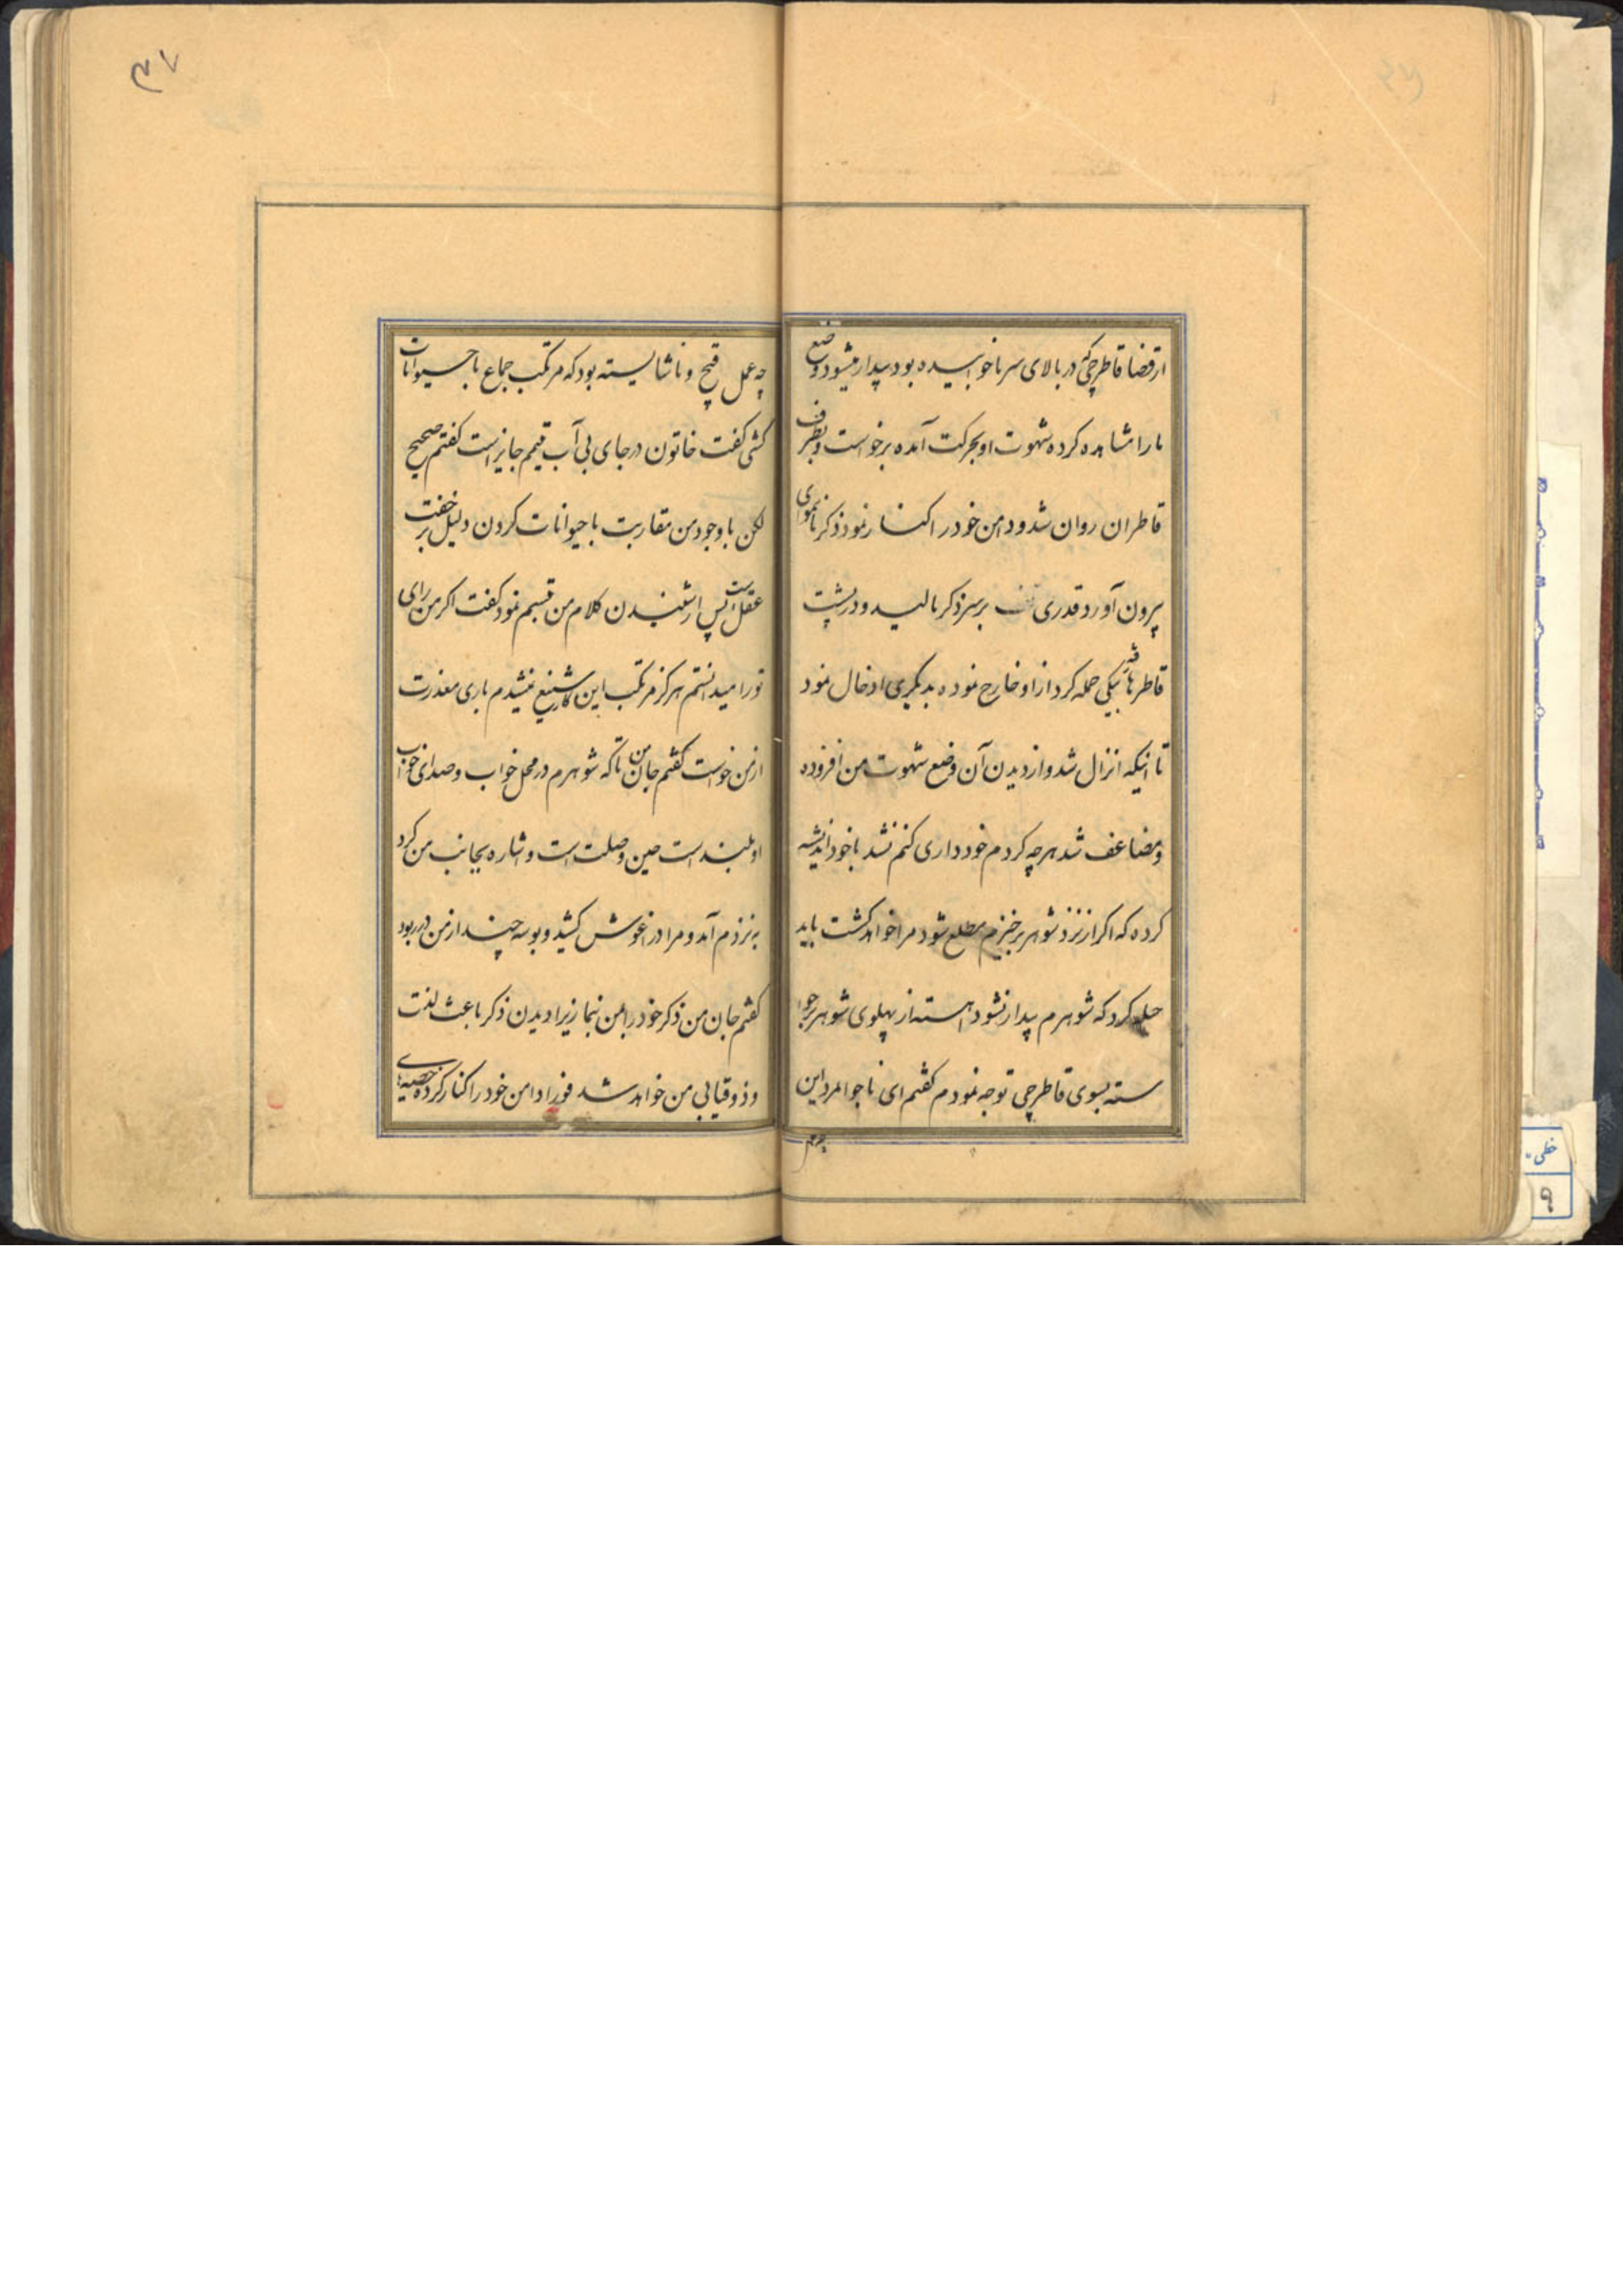 ۳۷
ازقضا قاطرچی که در بالای سر ما خوابیده بود بیدار میشود وضع
ما را مشاهده کرده شهوت او بحرکت آمده برخواست و بطرف
قاطران روان شد و دامن خود را کنار نمود ذکر
بیرون آورد قدری تف بر سر ذکر مالید و در پشت
قاطرها رفته بیکی حمله کرد از او خارج نموده بدیگری ادخال نمود
تا اینکه انزال شد و از دیدن آن وضع شهوت من افزوده
و مضاعف شد هرچه کردم خودداری کنم نشد با خود اندیشه
کرده که اگر از نزد شوهر برخیزم مطلع شود مرا خواهد کشت باید
حیله کرد که شوهرم بیدار نشود اهسته از پهلوی شوهر برخوا
سته بسوی قاطرچی توجه نمودم گفتم ای ناجوانمرد این
چه عمل
چه عمل قبیح و ناشایسته بود که مرتکب جماع با حیوانات
کشی گفت خاتون در جای بی آب تیمم جایز است گفتم صحیح
لکن با وجود من مقاربت با حیوانات کردن دلیل بر خفت
عقل است پس از شنیدن کلام من تبسم نمود گفت اگر من رای
تو را میدانستم هرگز مرتکب این کار شنیع نمیشدم باری معذرت
از من خواست گفتم جان من تا که شوهرم در محل خواب و صدای خواب
او بلند است حین وصلت است و اشاره بجانب من کرد
به نزدم آمد و مرا در آغوش کشید و بوسه چند از من در ربود
گفتم جان من ذکر خود را بمن بنما زیرا دیدن ذکر باعث لذت
و ذوقیابی من خواهد شد فورا دامن خود را کنار کرده خصیه های
خطی
۹